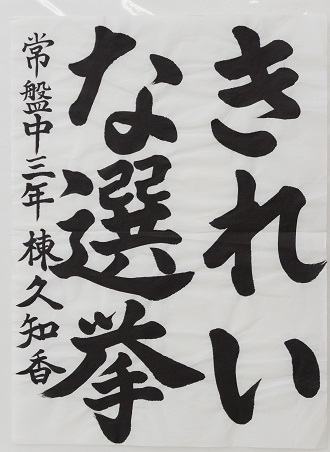 きれい
な選挙
常盤中三年 棟久知香